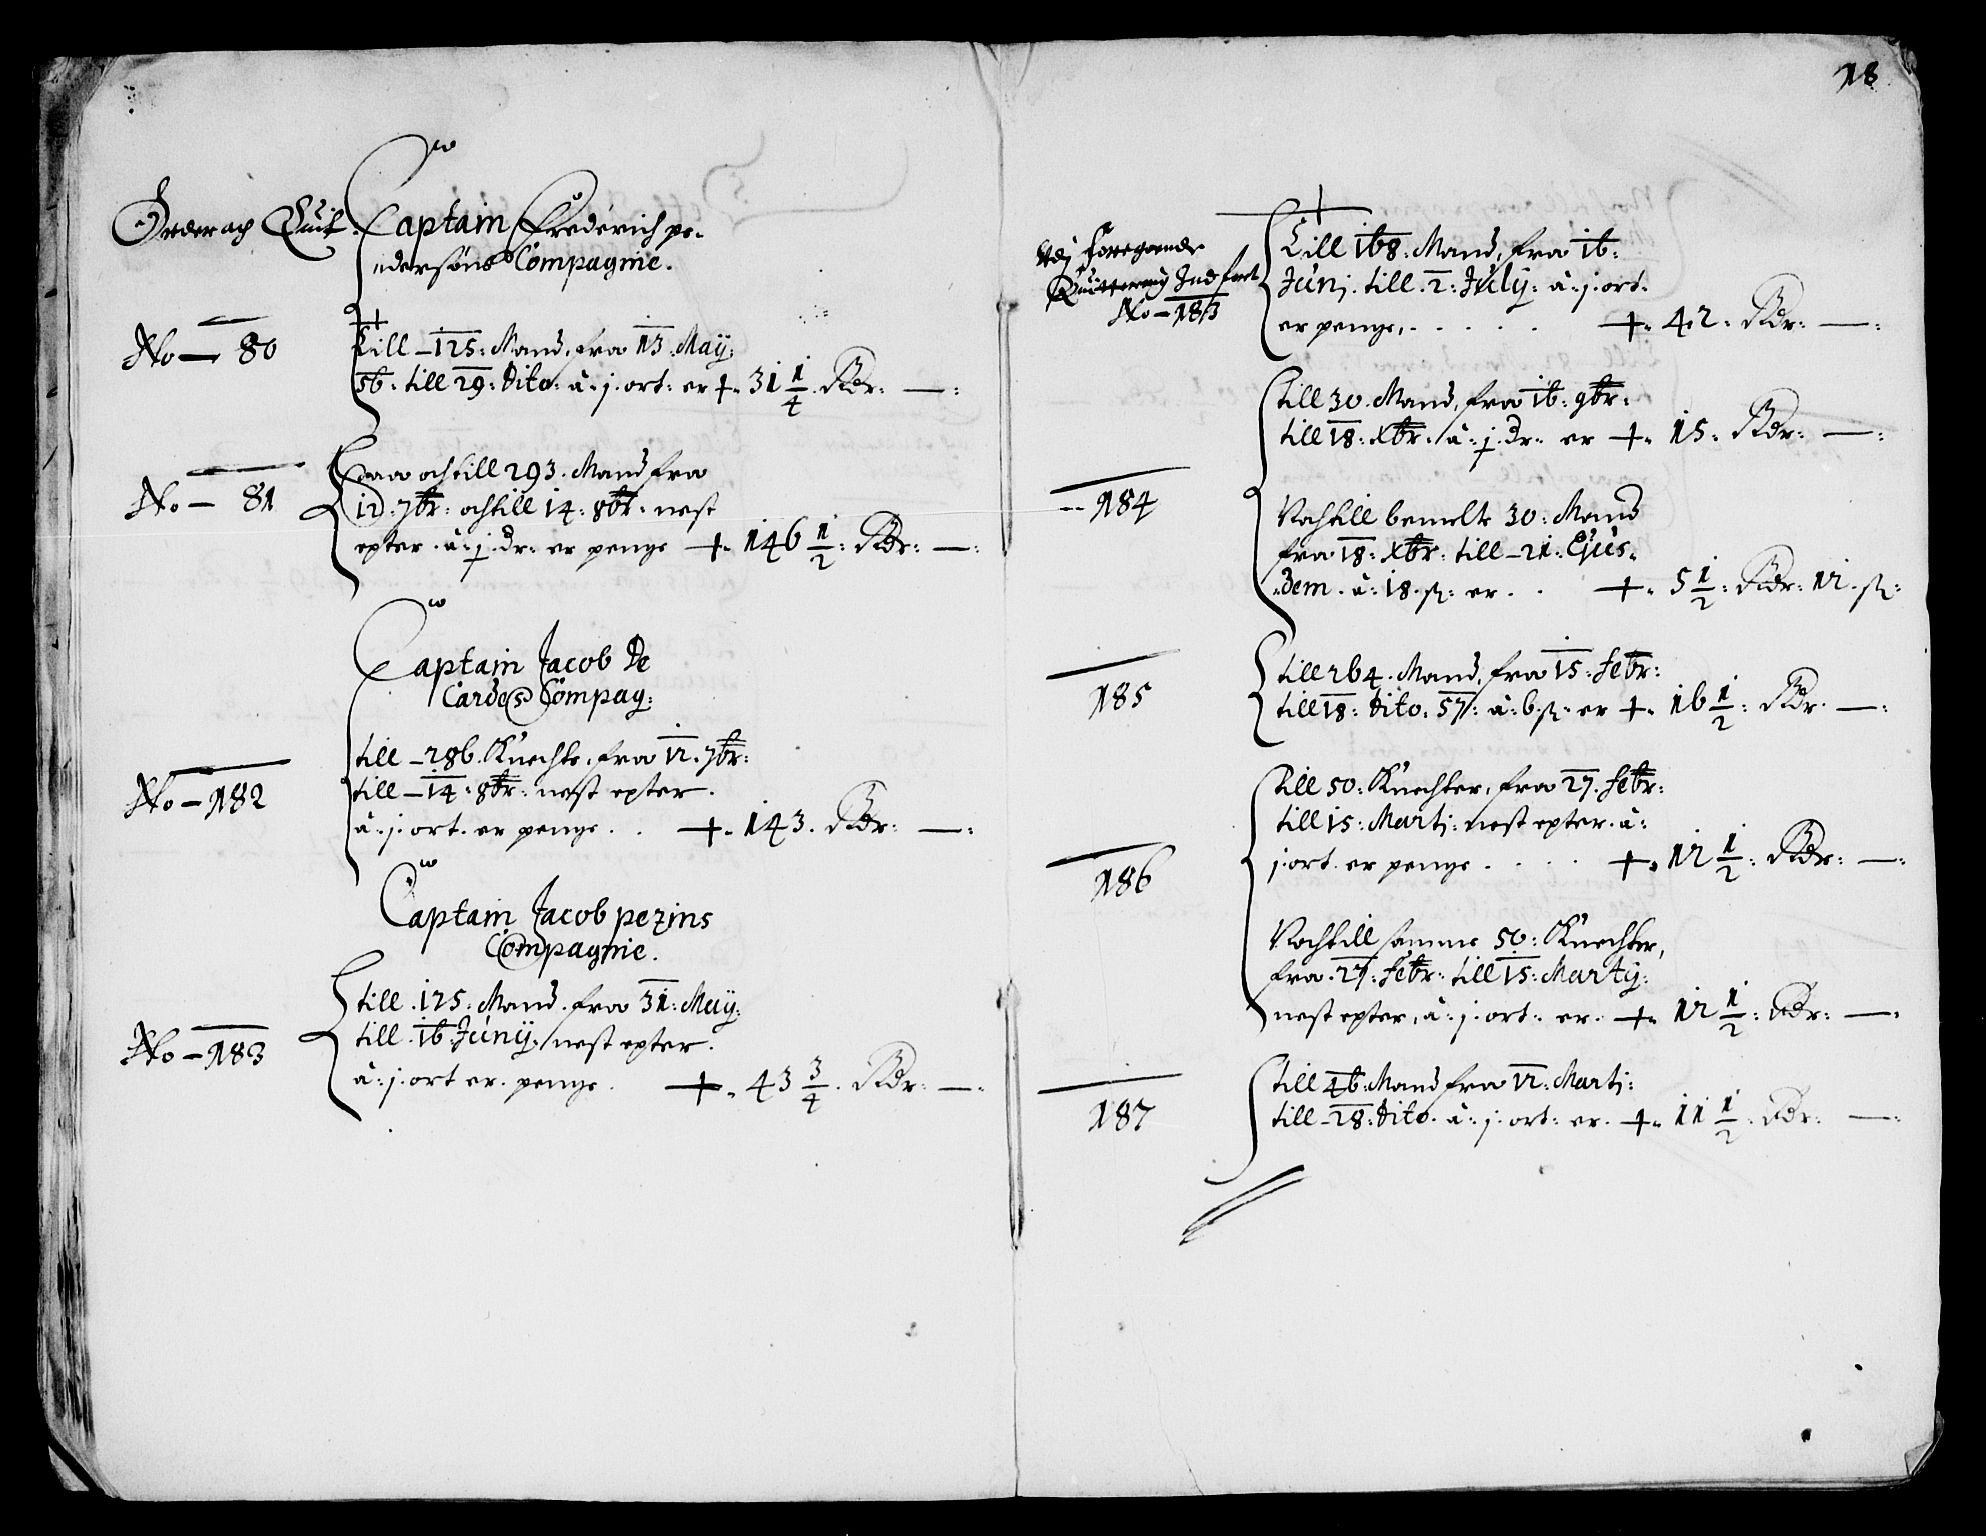 Order och Quit.
Captain Frederich pe-
edersøns Compagnie.
No — 80
Till – 125: Mand, fra 13. Maÿ:
56: till 29: dito: à: j: ort: er +. 31 1/4. Rdr: —:
No — 81
Saa och till 293. Mand fra
12. 7br: och till 14: 8br: nest
epter. à: j: dr: er penge +. 146 1/2: Rdr: —:
Captain Jacob de
Cardes Compag:
No — 182
till – 286. Knechte, fra 12. 7br:
till – 14: 8br: nest epter.
à: j: ort. er penge . . +. 143. Rdr: —:
Captain Jacob pezins
Compagnie.
No — 183
till. 125: Mand. fra 31: Maÿ:
till. 16. Junÿ: nest epter.
à: j: ort er. penge. +. 43 3/4. Rdr: —:
18
Udj foregaaende
Quittering Indfört
No — 183
Till 168: Mand, fra 16:
Junj. till. 2: Julÿ: à: j: ort:
er penge, . . . . +. 42. Rdr: —:
till 30. Mand, fra 16: 9br:
till 18: Xbr: à: j: dr: er +. 15: Rdr: —:
184
Noch till bemelte 30: Mand
fra 18: Xbr: till – 21: Ejus-
dem. à: 18. sz: er. . +. 5 1/2: Rdr: 12. sz:
185
till 264. Mand, fra 15: febr:
till 18: dito. 57: à: 6. sz: er +. 16 1/2: Rdr. —:
186
till 50: Knechter, fra 27. febr:
till 15: Martj: nest epter. à:
j: ort. er penge. . . . +. 12 1/2: Rdr: —:
Noch till samme 50: Knechter,
fra. 27: febr: till 15: Martÿ:
nest epter, à: j: ort: er. +. 12 1/2: Rdr: —:
187
till 46: Mand fra 12: Martj:
till – 28: dito. à: j: ort: er. +. 11 1/2: Rdr: —: